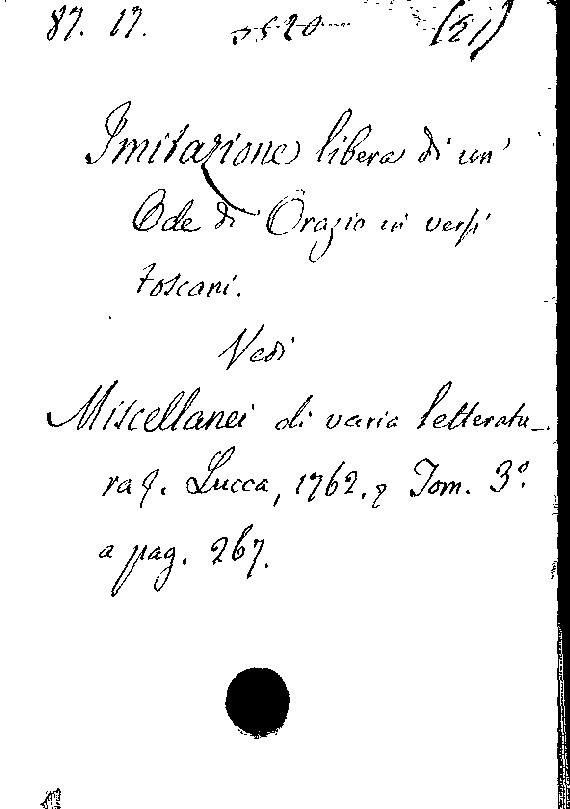 87. 17. (21)
Imitazione libera di un'
Ode di Orazio in versi
toscani.
Vedi
Miscellanei di varia letteratu-
ra. Lucca, 1762. Tom. 3º
a pag. 267.